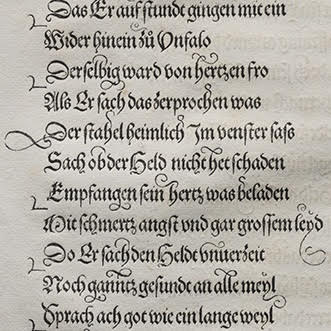 Das Er auf stundt gingen mit ein
Wider hinein zů Unfalo
Derselbig ward von hertzen fro
Als Er sach das zerprochen was
Der stahel heimlich Im venster sass
Sach ob der Held nicht het schaden
Empfangen sein hertz was beladen
Mit schmertz angst vnd gar grossem leyd
Do Er sach den Heldt vnuerzeit
Noch ganntz gesundt an alle meyl
Sprach ach got wie ein lange weyl